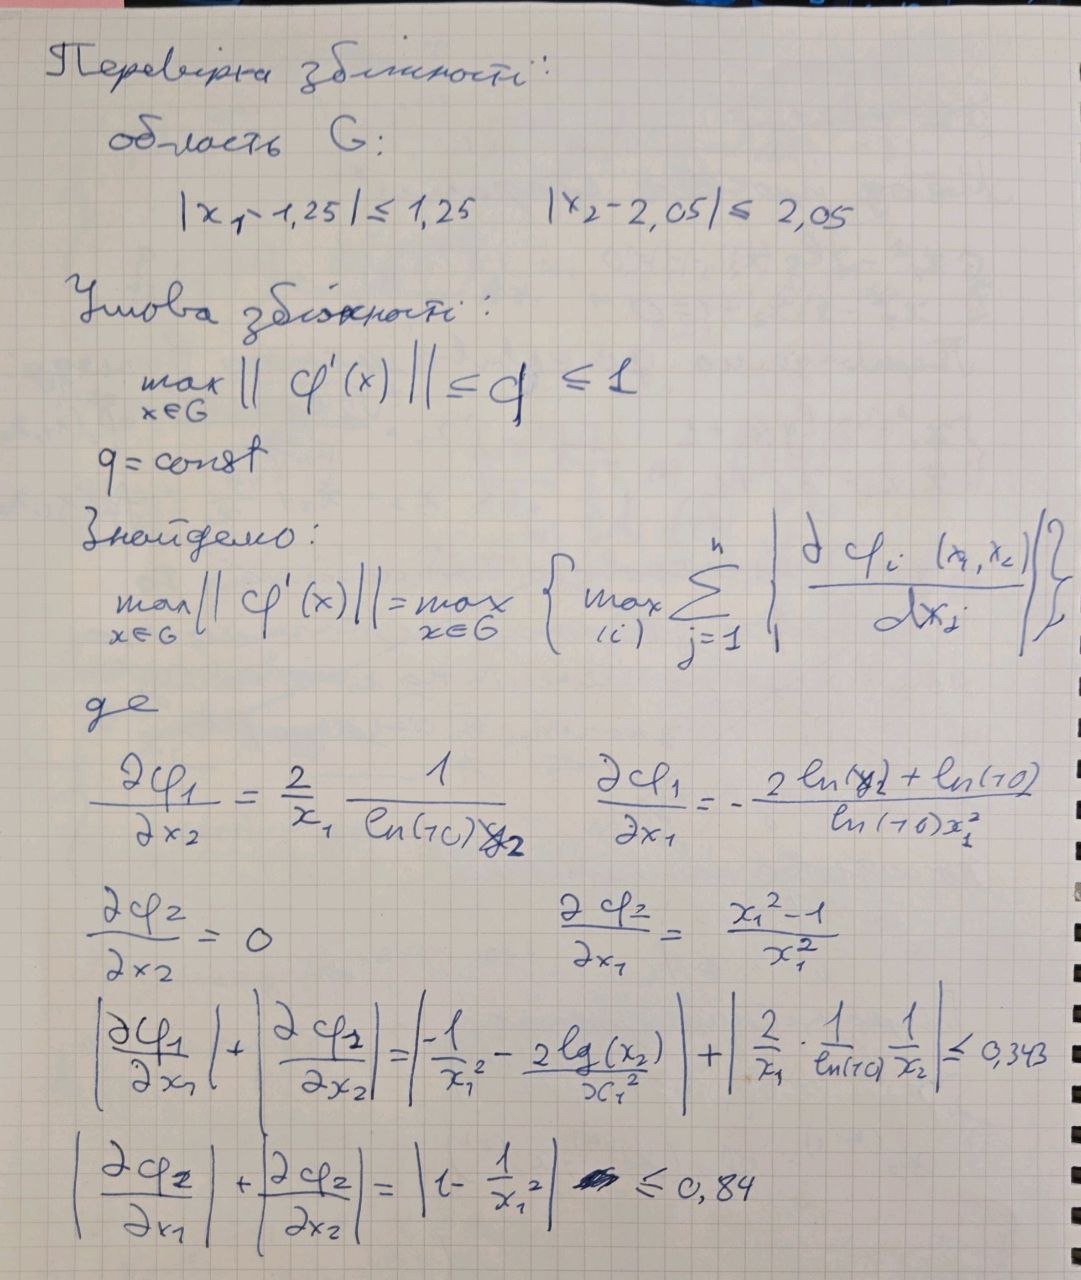 Перевірка збіжності:
область G:
|x₁ - 1,25| ≤ 1,25 |x₂ - 2,05| ≤ 2,05
Умова збіжності:
max x∈G ||φ'(x)|| ≤ q ≤ 1
q = const
Знайдемо:
max x∈G ||φ'(x)|| = max x∈G { max (i) Σ j=1 n | ∂φᵢ(x₁, x₂) / dxⱼ | }
де
∂φ₁/∂x₂ = 2/x₁ 1/(ln(10)x₂) ∂φ₁/∂x₁ = - (2 ln(x₂) + ln(10)) / (ln(10)x₁²)
∂φ₂/∂x₂ = 0 ∂φ₂/∂x₁ = (x₁² - 1)/x₁²
|∂φ₁/∂x₁| + |∂φ₁/∂x₂| = |-1/x₁² - 2lg(x₂)/x₁²| + |2/x₁ · 1/ln(10) 1/x₂| ≤ 0,343
|∂φ₂/∂x₁| + |∂φ₂/∂x₂| = |1 - 1/x₁²| ≤ 0,84